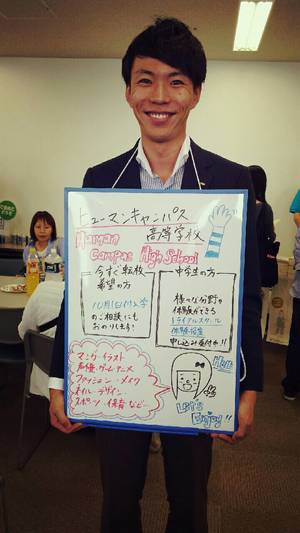 ヒューマンキャンパス
高等学校
Human
Campus High School
今すぐ転校
希望の方
10月1日付入学
のご相談にも
おのります!
中学生の方
様々な分野の
体験ができる
トライアルスクール
体験授業
申し込み受付中!!
マンガ・イラスト
声優・ゲーム・アニメ
ファッション・メイク
ネイル・デザイン
スポーツ・保育 など…
Let's
Enjoy!!